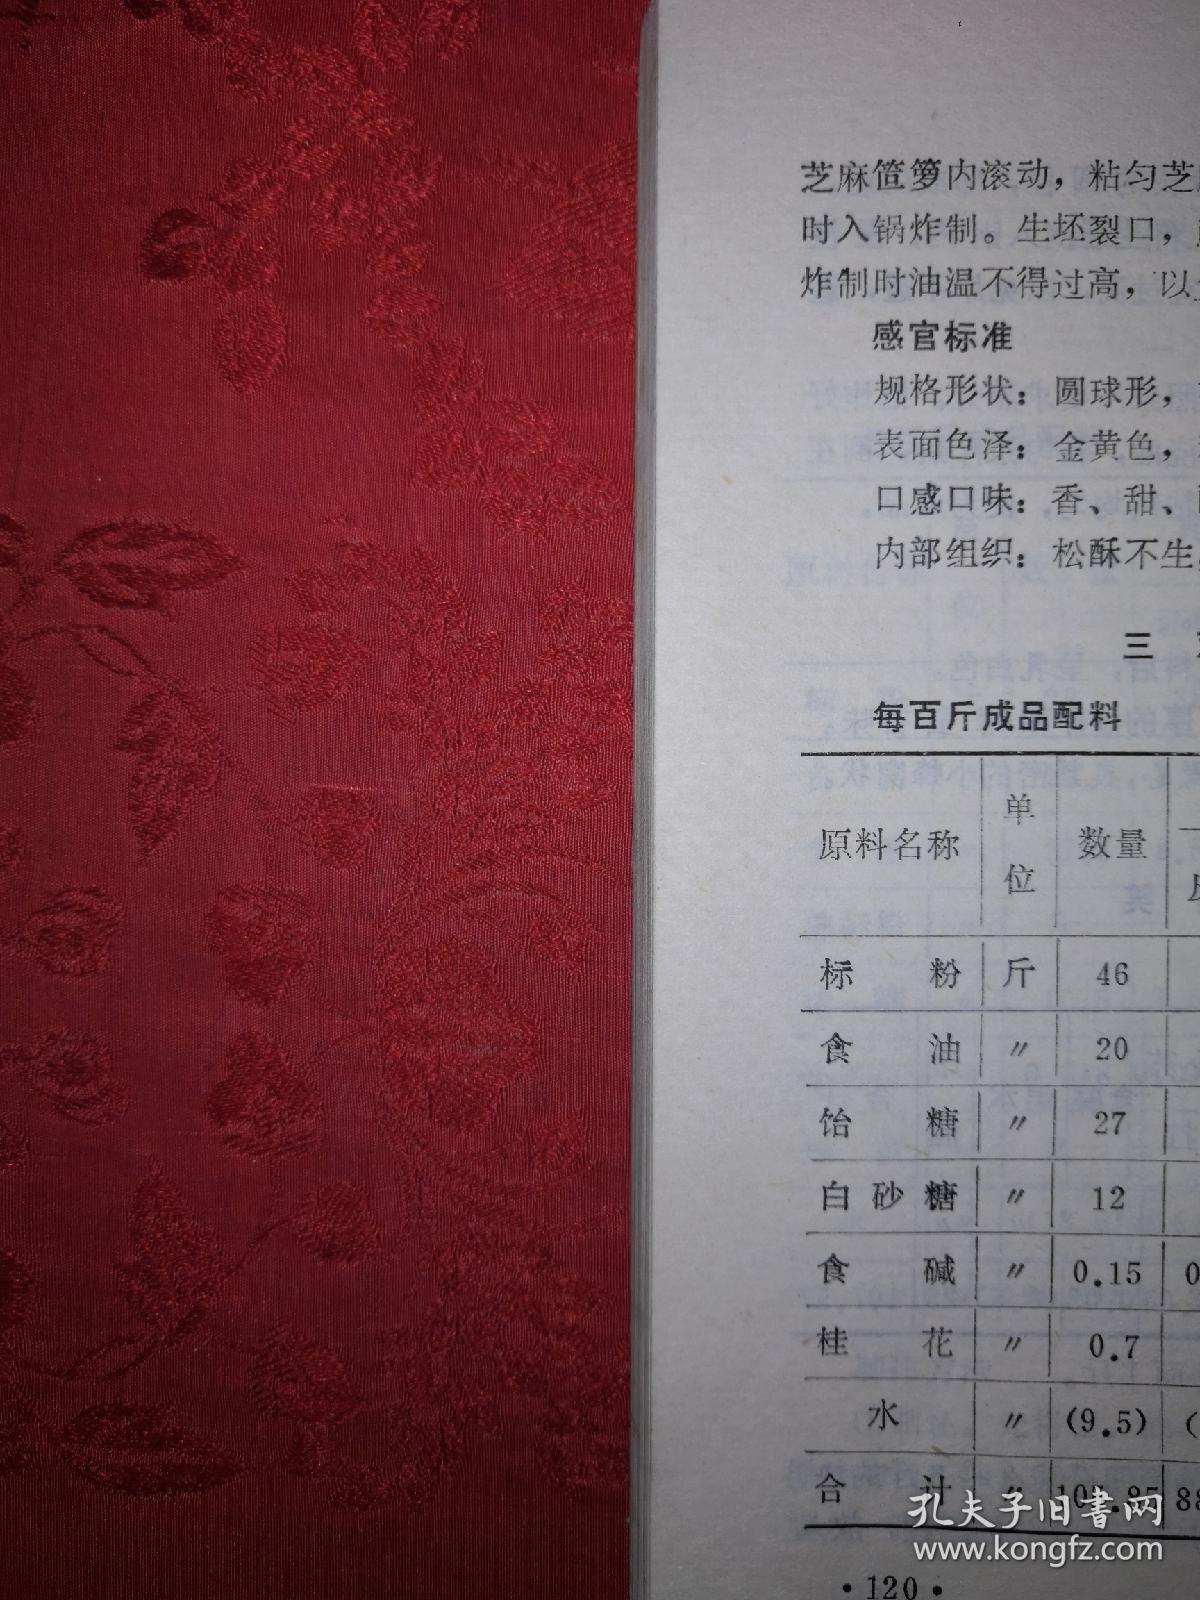 芝麻笸箩内滚动，粘匀芝
时入锅炸制。生坯裂口，
炸制时油温不得过高，以
感官标准
规格形状：圆球形，
表面色泽：金黄色，
口感口味：香、甜、
内部组织：松酥不生，
三
每百斤成品配料
原料名称 单位 数量
标粉 斤 46
食油 〃 20
饴糖 〃 27
白砂糖 〃 12
食碱 〃 0.15 0
桂花 〃 0.7
水 〃 (9.5) (
合计 〃 105.85 88
·120·
孔夫子旧书网
www.kongfz.com